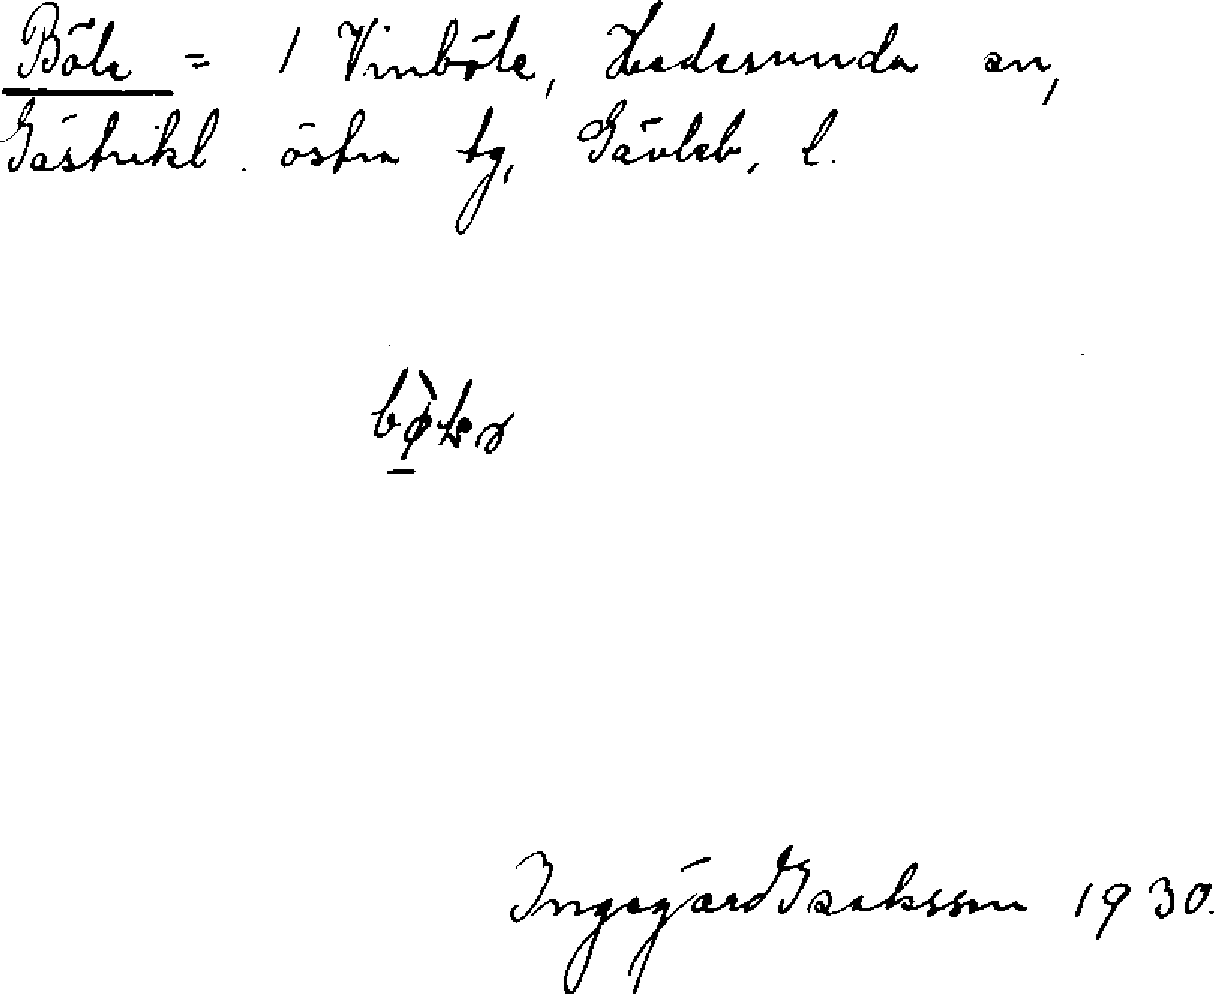 Böle = 1 Vinböle, Hedesunda sn,
Gästrikl. östra tg, Gävleb. l.
Ingegärd Isaksson 1930.